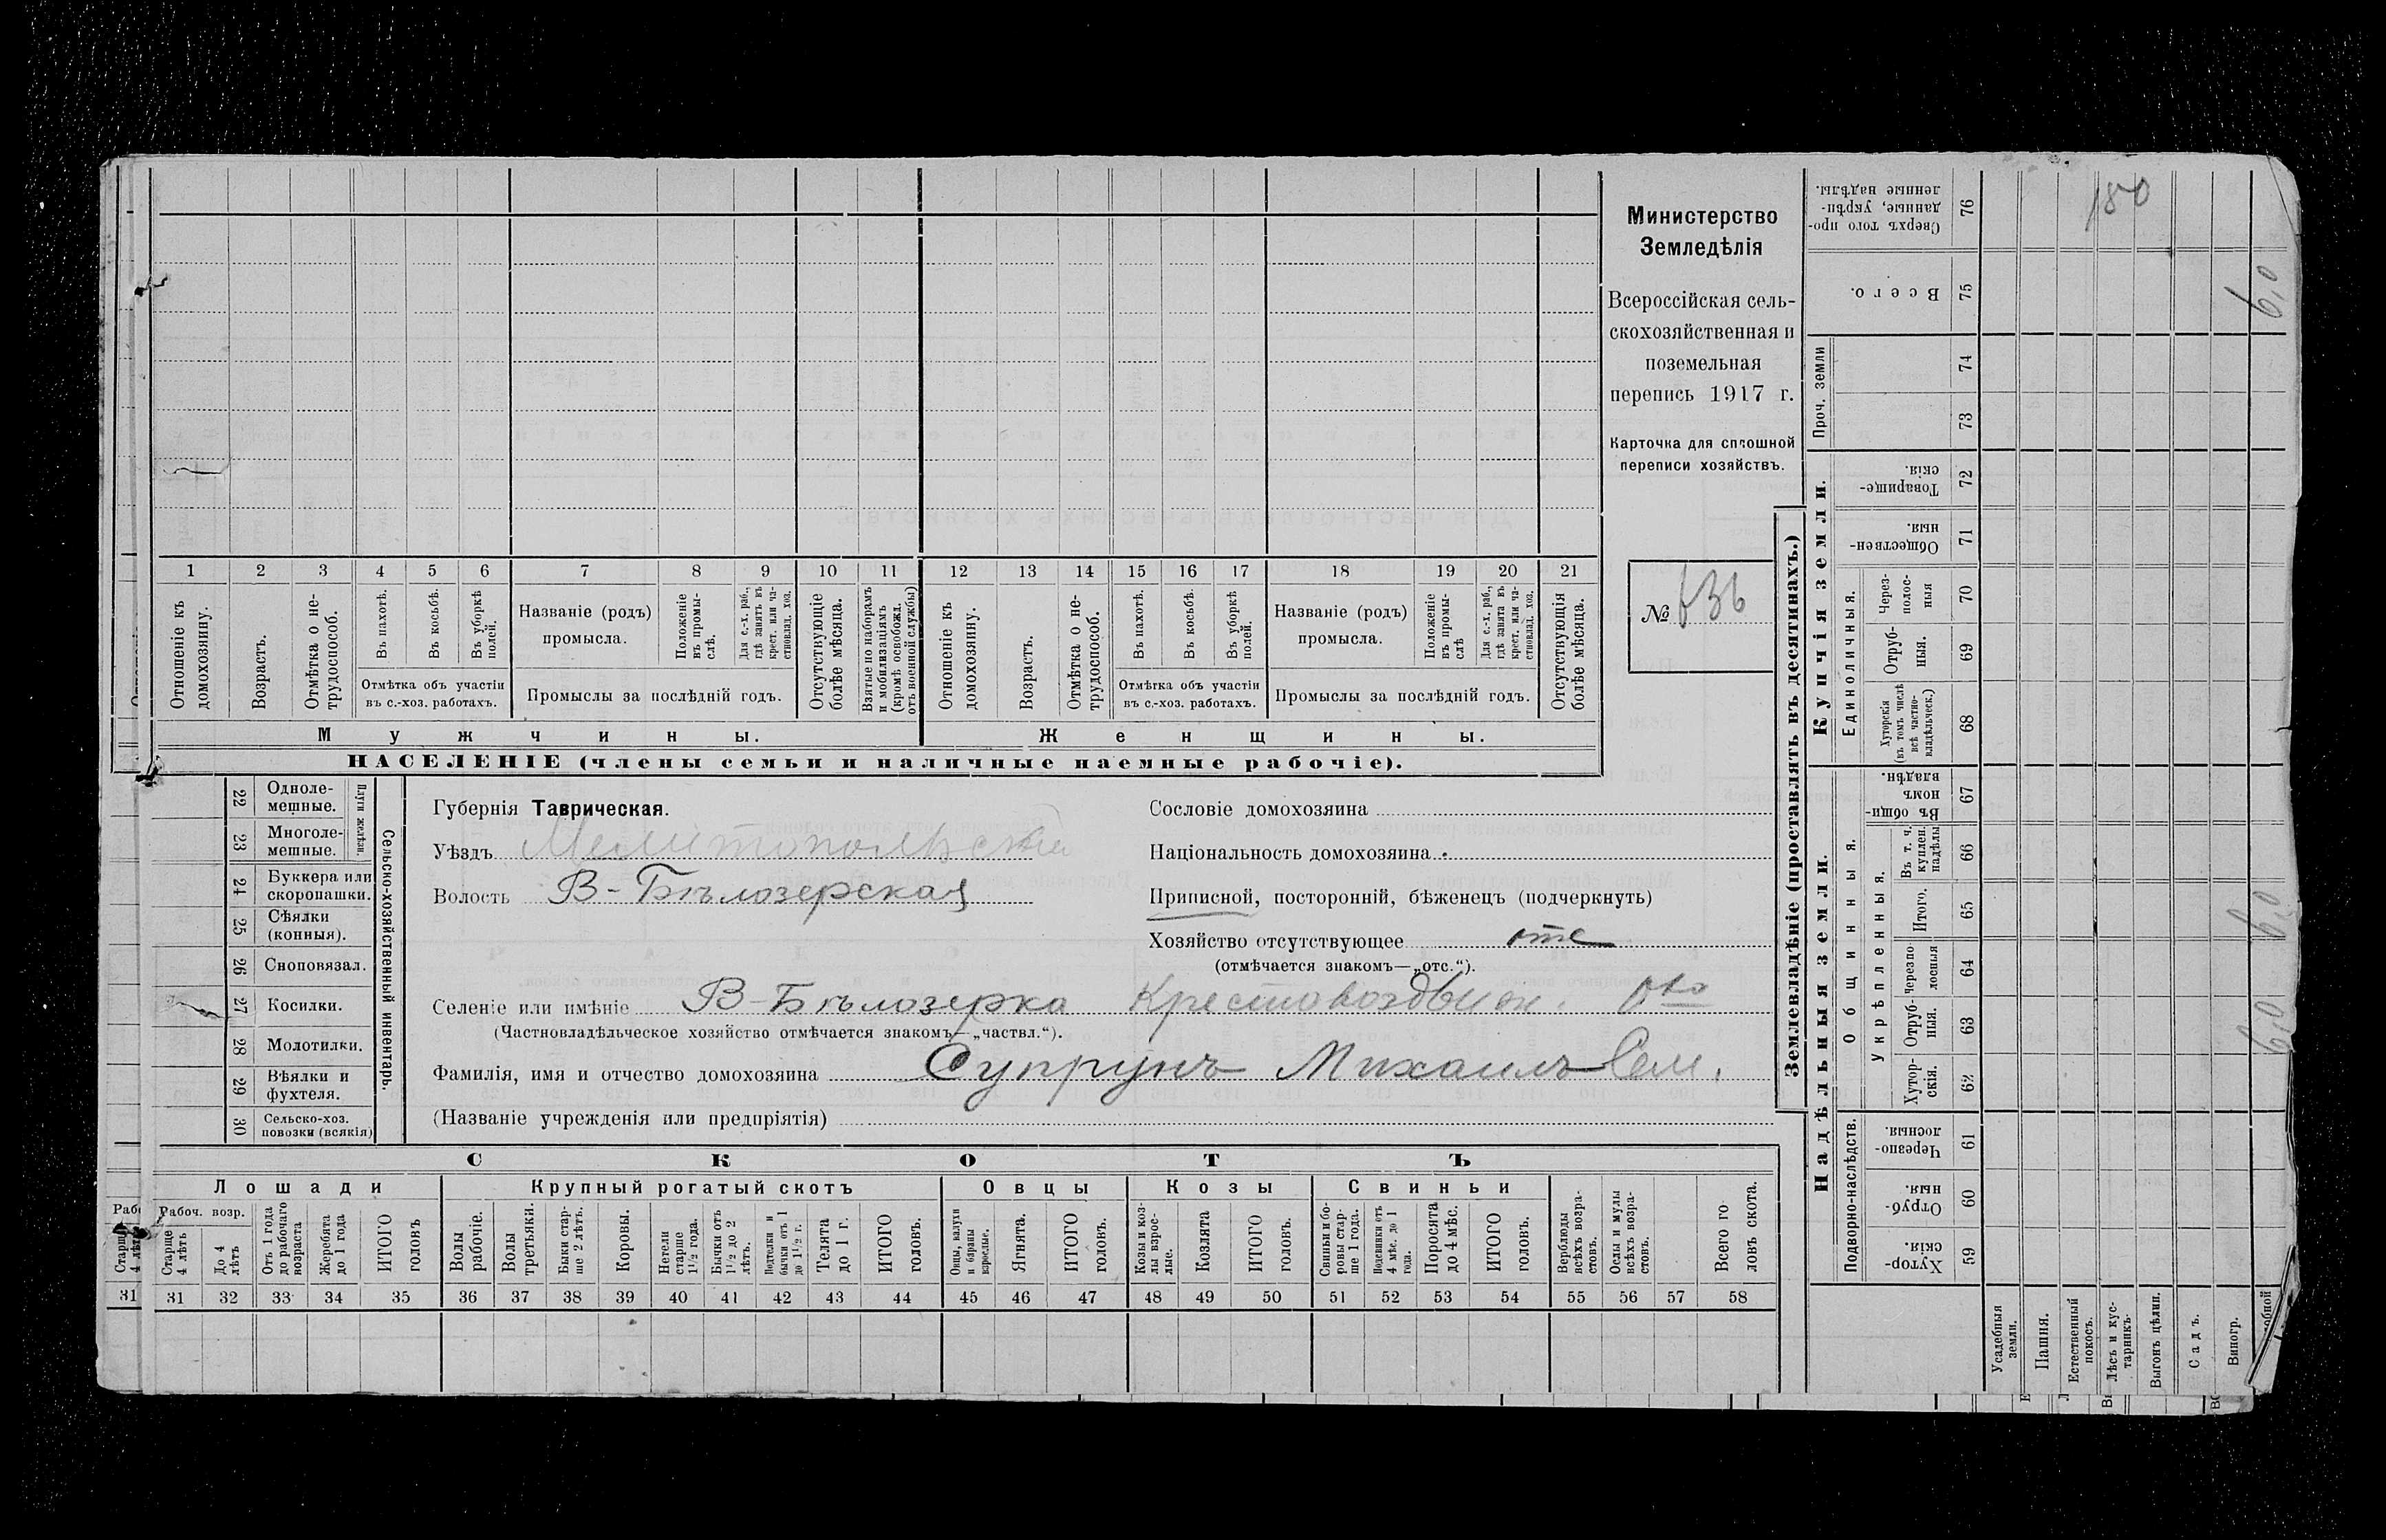 Министерство
Земледѣлія
Всероссійская сель-
скохозяйственная и
поземельная
перепись 1917 г.
Карточка для сплошной
переписи хозяйствъ.
№
1 2 3 4 5 6 7 8 9 10 11 12 13 14 15 16 17 18 19 20 21
Отношеніе къ домохозяину.
Возрастъ.
Отмѣтка о не-трудоспособ.
Въ пахотѣ.
Въ косьбѣ.
Въ уборкѣ полей.
Отмѣтка объ участіи
въ с.-хоз. работахъ.
Названіе (родъ)
промысла.
Положеніе въ промы-слѣ.
Для с.-х. раб., гдѣ занятъ въ крест. или ча-стновлад. хоз.
Промыслы за послѣдній годъ.
Отсутствующіе болѣе мѣсяца.
Взятые по наборамъ и мобилизаціямъ (кромѣ освобожд. отъ военной службы)
Отношеніе къ домохозяину.
Возрастъ.
Отмѣтка о не-трудоспособ.
Въ пахотѣ.
Въ косьбѣ.
Въ уборкѣ полей.
Отмѣтка объ участіи
въ с.-хоз. работахъ.
Названіе (родъ)
промысла.
Положеніе въ промы-слѣ
Для с.-х. раб., гдѣ занята въ крест. или ча-стновлад. хоз.
Промыслы за послѣдній годъ.
Отсутствующія болѣе мѣсяца.
Мужчины.
Женщины.
НАСЕЛЕНІЕ (члены семьи и наличные наемные рабочіе).
22 Одноле-мешные.
23 Многоле-мешные.
Плуги желѣзн.
24 Буккера или скоропашки.
25 Сѣялки (конныя).
26 Сноповязал.
27 Косилки.
28 Молотилки.
29 Вѣялки и фухтеля.
30 Сельско-хоз. повозки (всякія)
Сельско-хозяйственный инвентарь.
Губернія Таврическая.
Уѣздъ Мелитопольскій
Волость В-Бѣлозерская
Сословіе домохозяина
Національность домохозяина
Приписной, посторонній, бѣженецъ (подчеркнуть)
Хозяйство отсутствующее отс
(отмѣчается знакомъ—„отс.“).
Селеніе или имѣніе В-Бѣлозерка Крестовоздвиж.
(Частновладѣльческое хозяйство отмѣчается знакомъ—„частвл.“).
Фамилія, имя и отчество домохозяина Супрунъ Михаилъ Сем.
(Названіе учрежденія или предпріятія)
СКОТЪ
Лошади
Крупный рогатый скотъ
Овцы
Козы
Свиньи
Рабоч. возр.
Старше 4 лѣтъ
До 4 лѣтъ
Отъ 1 года до рабочаго возраста
Жеребята до 1 года
ИТОГО головъ
Волы рабочіе.
Волы третьяки.
Быки стар-ше 2 лѣтъ.
Коровы.
Нетели старше 1½ года.
Бычки отъ 1½ до 2 лѣтъ.
Подтелки и бычки отъ 1 до 1½ г.
Телята до 1 г.
ИТОГО головъ.
Овцы, валухи и бараны взрослые.
Ягнята.
ИТОГО головъ.
Козы и коз-лы взрос-лые.
Козлята
ИТОГО головъ.
Свиньи и бо-ровы стар-ше 1 года.
Подсвинки отъ 4 мѣс. до 1 года.
Поросята до 4 мѣс.
ИТОГО головъ.
Верблюды всѣхъ возра-стовъ.
Ослы и мулы всѣхъ возра-стовъ.
Всего го-ловъ скота.
31 32 33 34 35 36 37 38 39 40 41 42 43 44 45 46 47 48 49 50 51 52 53 54 55 56 57 58
Рабо
Старше 4 лѣтъ
31
Землевладѣніе (проставлять въ десятинахъ.)
Надѣльныя земли.
Купчія земли.
Проч. земли
Подворно-наслѣдств.
Общинныя.
Укрѣпленныя.
Единоличныя.
Хутор-скія. 59
Отруб-ныя. 60
Черезпо-лосныя. 61
Хутор-скія. 62
Отруб-ныя. 63
Черезпо-лосныя 64
Итого. 65
Въ т. ч. куплен. надѣлы 66
Въ общи-номъ владѣн. 67
Хуторскія (въ томъ числѣ всѣ частно-владѣльческ.) 68
Отруб-ныя. 69
Через-полос-ныя 70
Обществен-ныя. 71
Товарище-скія. 72
73
74
Всего. 75
Сверхъ того про-данные, укрѣп-ленные надѣлы. 76
Усадебныя земли.
Пашня.
Естественный покосъ.
Лѣсъ и кус-тарникъ.
Выгонъ цѣлин.
Садъ.
Виногр.
180
6,0
6,0
6,0